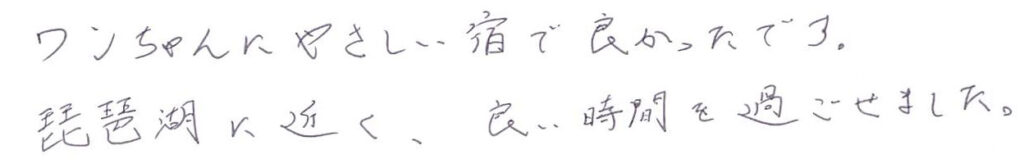 ワンちゃんにやさしい宿で良かったです。
琵琶湖に近く、良い時間を過ごせました。